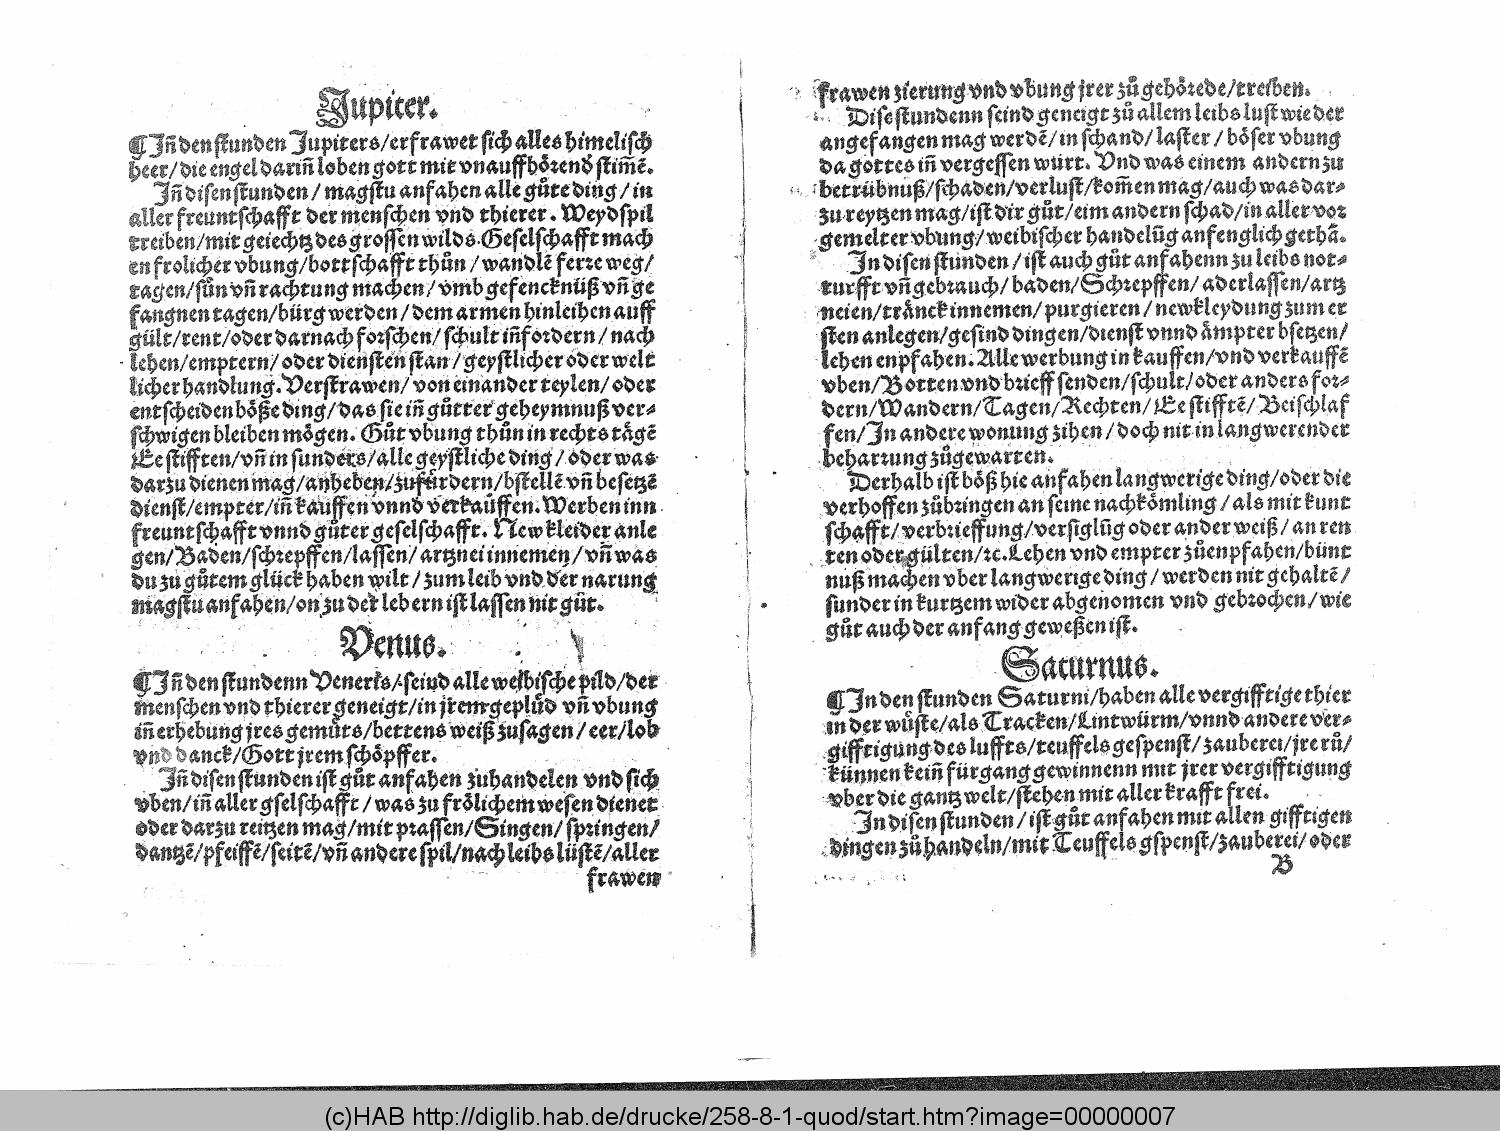 Jupiter.
¶ Jñ den stunden Jupiters/erfrawet sich alles himelisch
heer/die engel darin̄ loben gott mit vnauffhörend stim̄ē.
Jñ disen stunden/ magstu anfahen alle gůte ding/in
aller freuntschafft der menschen vnd thierer. Weydspil
treiben/mit geiechtz des grossen wilds. Geselschafft mach
en frolicher vbung/bottschafft thůn/wandlē ferre weg/
tagen/sůn vn̄ rachtung machen/vmb gefencknüß vn̄ ge
fangnen tagen/bürg werden/dem armen hinleihen auff
gült/rent/oder darnach forschen/schult in̄fordern/nach
lehen/emptern/oder diensten stan/geystlicher oder welt
licher handlung. Versfrawen/von einander teylen/oder
entscheiden böße ding/das sie in̄ gůtter geheymnuß ver-
schwigen bleiben mögen. Gůt vbung thůn in rechts tägē
Ee stifften/vn̄ in sunders/alle geystliche ding/oder was
darzu dienen mag/anheben/zufürdern/bstellē vn̄ besetzē
dienst/empter/in̄ kauffen vnnd verkauffen. Werben inn
freuntschafft vnnd gůter geselschafft. New kleider anle
gen/Baden/schrepffen/lassen/artznei innemen/vn̄ was
du zu gůtem glück haben wilt/zum leib vnd der narung
magstu anfahen/on zu der lebern ist lassen nit gůt.
Venus.
¶ Jñ den stundenn Veneris/seind alle weibische pild/der
menschen vnd thierer geneigt/in jrem geplůd vn̄ vbung
in̄ erhebung jres gemůts/bettens weiß zusagen/eer/lob
vnd danck/Gott jrem schöpffer.
Jñ disen stunden ist gůt anfahen zuhandelen vnd sich
vben/in̄ aller gselschafft/was zu frölichem wesen dienet
oder darzu reitzen mag/mit prassen/Singen/springen/
dantzē/pfeiffē/seitē/vn̄ andere spil/nach leibs lüstē/aller
frawen
frawen zierung vnd vbung jrer zůgehörede/treiben.
Dise stundenn seind geneigt zů allem leibs lust wie der
angefangen mag werdē/in schand/laster/böser vbung
da gottes in̄ vergessen würt. Vnd was einem andern zu
betrübnuß/schaden/verlust/kom̄en mag/auch was dar-
zu reytzen mag/ist dir gůt/eim andern schad/in aller vor
gemelter vbung/weibischer handelūg anfenglich gethā.
Jn disen stunden/ist auch gůt anfahenn zu leibs not-
turfft vn̄ gebrauch/baden/Schrepffen/aderlassen/artz
neien/tränck innemen/purgieren/new kleydung zum er
sten anlegen/gesind dingen/dienst vnnd ämpter bsetzen/
lehen enpfahen. Alle werbung in kauffen/vnd verkauffē
vben/Botten vnd brieff senden/schult/oder anders for-
dern/Wandern/Tagen/Rechten/Ee stifftē/Beischlaf
fen/Jn andere wonung zihen/doch nit in langwerender
beharrung zůgewarten.
Derhalb ist böß hie anfahen langwerige ding/oder die
verhoffen zübringen an seine nachkömling/als mit kunt
schafft/verbrieffung/versiglūg oder ander weiß/an ren
ten oder gülten/rc. Lehen vnd empter zůenpfahen/bünt
nuß machen vber langwerige ding/werden nit gehaltē/
sunder in kurtzem wider abgenomen vnd gebrochen/wie
gůt auch der anfang geweßen ist.
Saturnus.
¶ Jn den stunden Saturni/haben alle vergifftige thier
in der wůste/als Tracken/Lintwürm/vnnd andere ver-
gifftigung des luffts/teuffels gespenst/zauberei/jre rů/
künnen kein̄ fürgang gewinnenn mit jrer vergifftigung
vber die gantz welt/stehen mit aller krafft frei.
Jn disen stunden/ist gůt anfahen mit allen gifftigen
dingen zůhandeln/mit Teuffels gspenst/zauberei/oder
B
(c)HAB http://diglib.hab.de/drucke/258-8-1-quod/start.htm?image=00000007